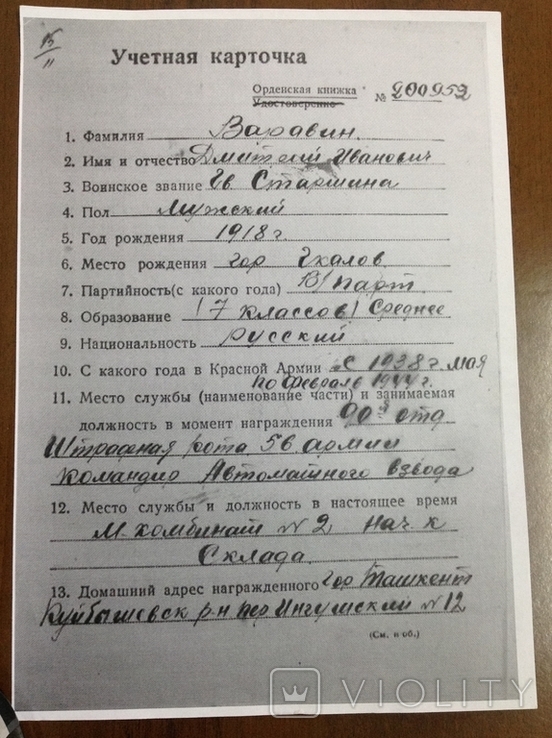 15/11
Учетная карточка
Орденская книжка
Удостоверение № 200952
1. Фамилия Варавин
2. Имя и отчество Дмитрий Иванович
3. Воинское звание Гв. Старшина
4. Пол Мужский
5. Год рождения 1918 г.
6. Место рождения гор Чкалов
7. Партийность(с какого года) В/парт.
8. Образование (7 классов) Среднее
9. Национальность русский
10. С какого года в Красной Армии с 1938 г. мая
по февраль 1944 г.
11. Место службы (наименование части) и занимаемая
должность в момент награждения 90й отд
Штрафная рота 56 армии
командир Автоматного взвода
12. Место службы и должность в настоящее время
М. комбинат № 2 Нач к
Склада.
13. Домашний адрес награжденного гор Ташкент
Куйбышевск р-н пер Ингумский № 12
(См. н об.)
VIOLITY